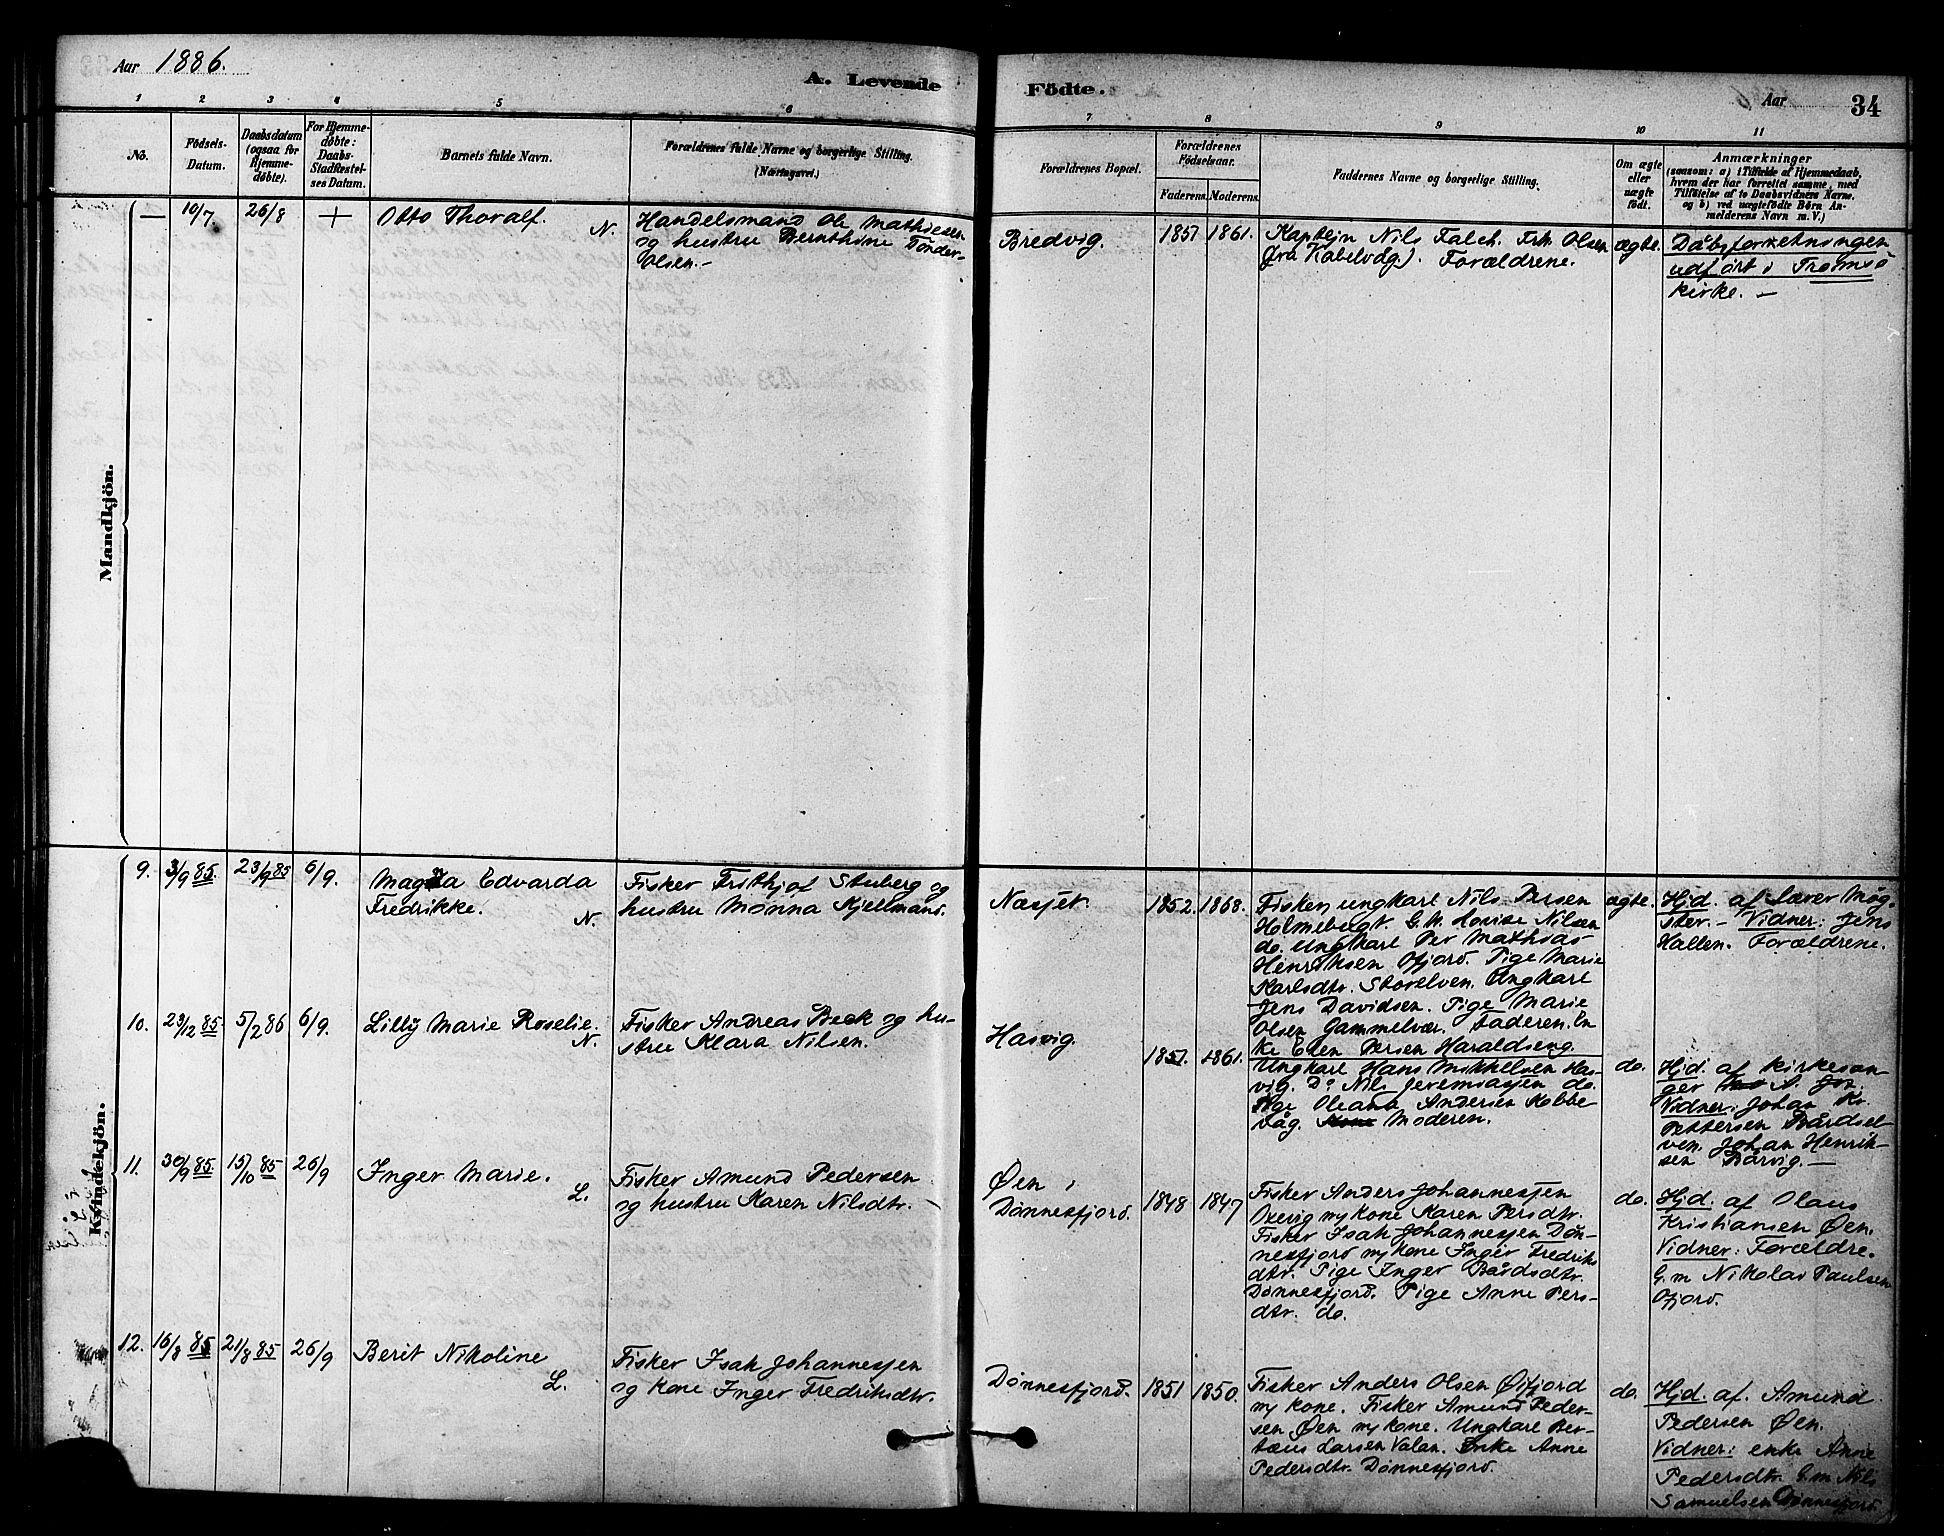 Aar 1886.
A. Levende
Födte.
Aar
34
1
2
3
4
5
6
7
8
9
10
11
No.
Födsels-
Datum.
Daabsdatum
(ogsaa for
Hjemme-
döbte).
For Hjemme-
döbte:
Daabs-
Stadfæstel-
ses Datum.
Barnets fulde Navn.
Forældrenes fulde Navne og borgerlige Stilling.
(Næringsvei.)
Forældrenes Bopæl.
Forældrenes
Födselsaar.
Faderens.
Moderens.
Faddernes Navne og borgerlige Stilling.
Om ægte
eller
uægte
födt.
Anmærkninger
(saasom: a) i Tilfælde af Hjemmedaab,
hvem der har forrettet samme, med
Tilföielse af to Daabsvidners Navne,
og b) ved uægtefödte Börn An-
melderens Navn m. V.)
Mandkjön.
—
10/7
26/8
+
Otto Thoralf.
N.
Handelsmand Ole Mathiesen
og hustru Bernthine Tønder-
Olsen.—
Bredvig.
1857
1861.
Kaptejn Nils Falch. Frk. Olsen
(fra Kabelvåg). Forældrene.
ægte.
Dåbsforretningen
udført i Tromsø
kirke.—
Kvindekjön.
9.
3/9 85.
23/9 85
6/9.
Magda Edvarda
Fredrikke.
N.
Fisker Frithjof Stuberg og
hustru Monna Kjellmand.
Næsjet.
1852.
1868.
Fisker, ungkarl Nils Persen
Holmebugt. G. M. Lovise Nilsen
do. Ungkarl Per Mathias
Henriksen Ofjord. Pige Marie
Karlsdtr. Storelven. Ungkarl
Jens Davidsen. Pige Marie
Olsen Gammelvær. Faderen. En
ke Elen Persen Haraldseng.
ægte.
Hjd. af Lærer Møg-
ster.— Vidner: Jens
Hallen. Forældrene.
10.
23/12 85
5/2 86
6/9.
Lilly Marie Roselie.
N.
Fisker Andreas Beck og hu-
stru Klara Nilsen.
Hasvig.
1857.
1861.
Ungkarl Hans Mikkelsen Has-
vig. Do Nils Jeremiassen do.
Pige Oleana Andersen Kobbe-
våg. Moderen.
do.
Hjd. af kirkesan-
ger A.
Vidner: Johan Kr.
Pettersen Bårdsel-
ven. Johan Henrik-
sen Bårvig.—
11.
30/9 85.
15/10 85
26/9
Inger Marie.
L.
Fisker Amund Pedersen
og hustru Karen Nilsdtr.
Øen i
Dønnesfjord.
1848
1847
Fisker Anders Johannessen
Oxevig m/kone Karen Persdtr.
Fisker Isak Johannessen Døn-
nesfjord m/kone Inger Fredriks
dtr. Pige Inger Bårdsdtr.
Dønnesfjord. Pige Anne Pers-
dtr. do.
do.
Hjd. af Olaus
Kristiansen Øen.
Vidner: Forældre.
G. m Nikolai Paulsen
Ofjord.
12.
16/8 85
21/8 85
26/9
Berit Nikoline
L.
Fisker Isak Johannessen
og Kone Inger Fredriksdtr.
Dønnesfjord.
1851
1850.
Fisker Anders Olsen Øifjord
m/ kone. Fisker Amund Peder-
sen Øen m/kone. Ungkarl Ber-
tæus Larsen Valan. Enke Anne
Pedersdtr. Dønnesfjord.
do.
Hjd. af. Amund
Pedersen Øen.
Vidner: enke Anne
Pedersdtr. G. m. Nils
Samuelsen Dønnesfjord.